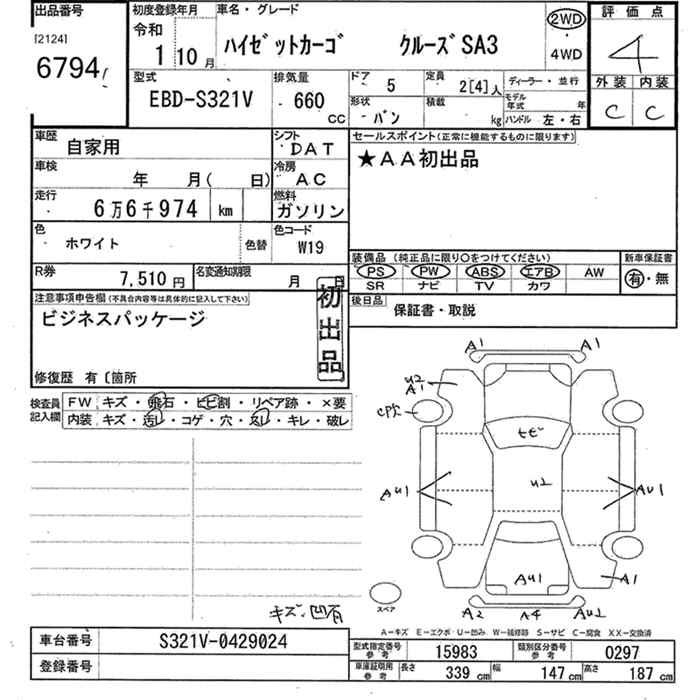 出品番号
[2124]
6794
初度登録年月
令和
1 10 月
車名・グレード
ハイゼットカーゴ クルーズ SA3
2WD
・
4WD
評価点
4
外装 内装
C C
型式
EBD-S321V
排気量
660
CC
ドア 5
定員 2[4]人
ディーラー・並行
形状 バン
積載 kg
モデル年式 年
ハンドル 左・右
車歴 自家用
シフト DAT
車検 年 月( 日)
冷房 AC
走行 6万6千974 km
燃料 ガソリン
色 ホワイト 色替
色コード W19
R券 7,510円
名変通知期限 月 日
セールスポイント(正常に機能するものに限ります)
★AA初出品
装備品 (純正品に限り〇をつけてください)
新車保証書
PS PW ABS エアB AW
SR ナビ TV カワ
有・無
後日品 保証書・取説
注意事項申告欄(不具合内容等は具体的に記入して下さい)
ビジネスパッケージ
初出品
修復歴 有〔箇所
検査員記入欄
FW キズ・飛石・ヒビ割・リペア跡・×要
内装 キズ・汚レ・コゲ・穴・返レ・キレ・破レ
A1 A1
U2
A1
ヒビ
U2
AU1 AU1
AU1 A1
A2 A4 AU2
スペア
キズ・凹有
A−キズ E−エクボ U−凹み W−補修跡 S−サビ C−腐食 XX−交換済
車台番号 S321V-0429024
登録番号
型式指定番号 参考 15983
類別区分番号 参考 0297
車庫証明用 参考 長さ 339 cm 幅 147 cm 高さ 187 cm